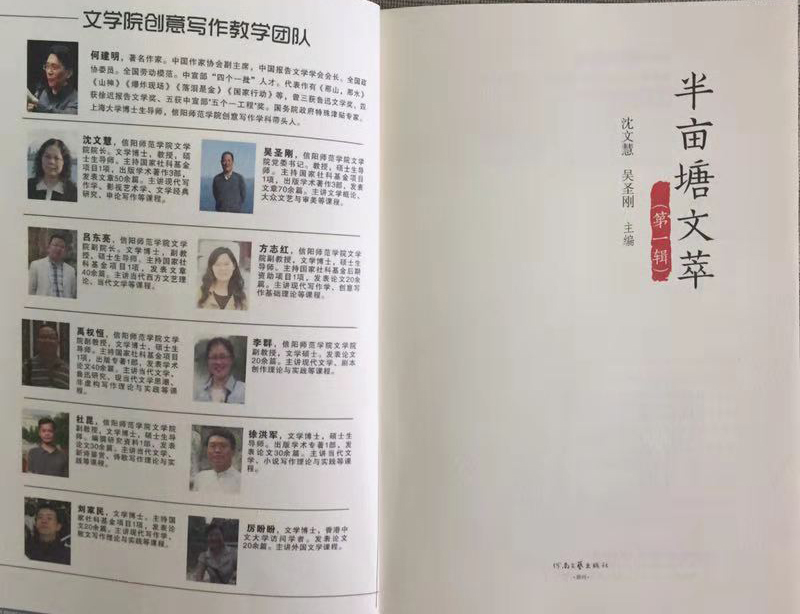 文学院创意写作教学团队
何建明，著名作家。中国作家协会副主席，中国报告文学学会会长、全国政
协委员。全国劳动模范。中宣部“四个一批”人才。代表作有《那山，那水》
《山神》《爆炸现场》《落泪是金》《国家行动》等，曾三获鲁迅文学奖、四
获徐迟报告文学奖、五获中宣部“五个一工程”奖。国务院政府特殊津贴专家。
上海大学博士生导师，信阳师范学院创意写作学科带头人。
沈文慧，信阳师范学院文学
院院长。文学博士，教授，硕
士生导师。主持国家社科基金
项目1项，出版学术著作3部，
发表文章50余篇。主讲现代写
作学、影视艺术学、文学经典
研究、申论写作等课程。
吴圣刚，信阳师范学院文学
院党委书记、教授，硕士生导
师。主持国家社科基金项目
1项，出版学术著作3部，发表
文章70余篇。主讲文学概论、
大众文艺与审美等课程。
吕东亮，信阳师范学院文学
院副院长。文学博士，副教
授，硕士生导师。主持国家社
科基金项目1项，发表文章
40余篇。主讲当代西方文艺理
论、当代文学等课程。
方志红，信阳师范学院文学院
副教授，文学博士，硕士生
导师。主持国家社科基金后期
资助项目1项，发表论文20余
篇。主讲现代写作学、创意写
作基础理论等课程。
禹权恒，信阳师范学院文学
院副教授，文学博士，硕士生
导师。主持国家社科基金项目
1项，出版专著1部，发表学术
论文40余篇。主讲当代文学、
鲁迅研究、现当代文学思潮、
非虚构写作理论与实践等课
程。
李群，信阳师范学院文学院
副教授，文学硕士。发表论文
20余篇。主讲现代文学、剧本
创作理论与实践等课程。
杜昆，信阳师范学院文学院
副教授，文学博士，硕士生导
师。编撰研究资料1部，发表
论文30余篇。主讲当代文学、
新诗鉴赏、诗歌写作理论与实
践等课程。
徐洪军，文学博士，硕士生
导师。出版学术专著1部，发
表论文30余篇。主讲当代文
学、小说写作理论与实践等课
程。
刘家民，文学博士。主持国
家社科基金项目1项，发表论
文20余篇。主讲现代写作学、
散文写作理论与实践等课程。
厉盼盼，文学博士，香港中
文大学访问学者。发表论文
20余篇。主讲外国文学课程。
半亩塘文萃
（第一辑）
沈文慧 吴圣刚 主编
河南文艺出版社
·郑州·